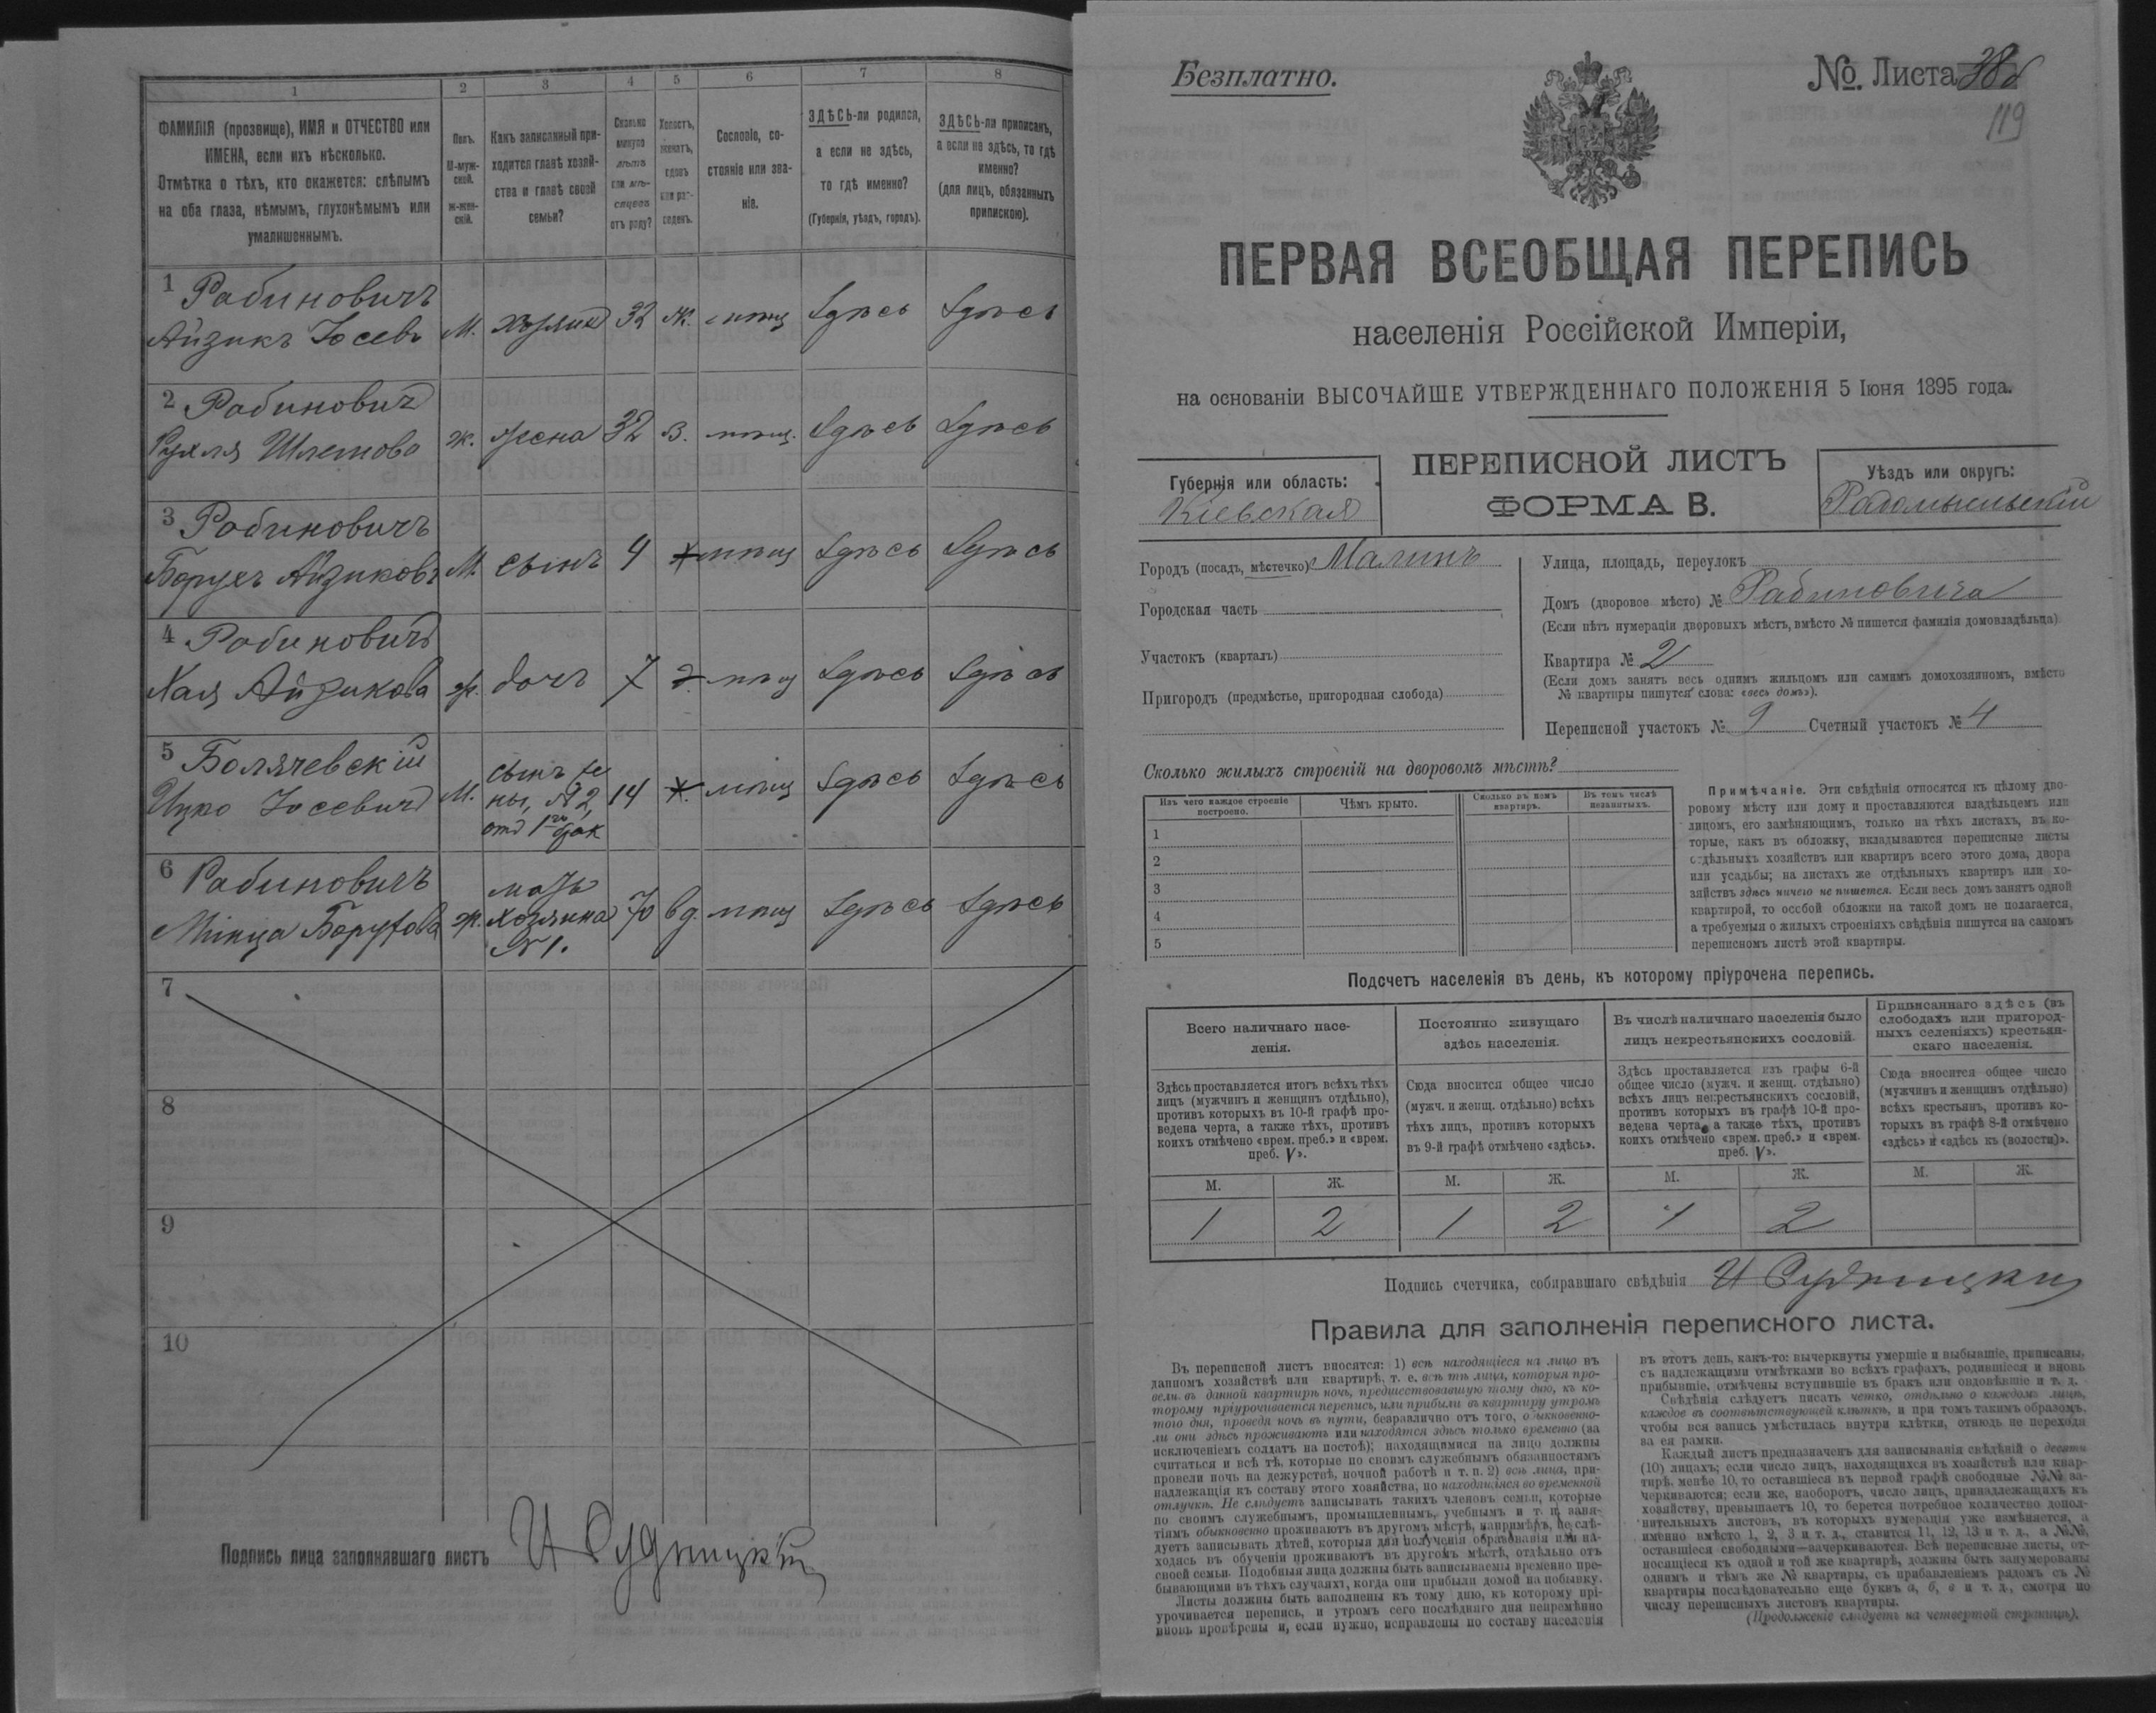 1
2
3
4
5
6
7
8
ФАМИЛІЯ (прозвище), ИМЯ и ОТЧЕСТВО или
ИМЕНА, если ихъ нѣсколько.
Отмѣтка о тѣхъ, кто окажется: слѣпымъ
на оба глаза, нѣмымъ, глухонѣмымъ или
умалишеннымъ.
Полъ.
М-муж-
ской.
Ж-жен-
скій.
Какъ записанный при-
ходится главѣ хозяй-
ства и главѣ своей
семьи?
Сколько
минуло
лѣтъ
или мѣ-
сяцевъ
отъ роду?
Холостъ,
женатъ,
вдовъ
или раз-
веденъ.
Сословіе, со-
стояніе или зва-
ніе.
ЗДѢСЬ-ли родился,
а если не здѣсь,
то гдѣ именно?
(Губернія, уѣздъ, городъ).
ЗДѢСЬ-ли приписанъ,
а если не здѣсь, то гдѣ
именно?
(для лицъ, обязанныхъ
припискою).
1 Рабиновичъ
Айзикъ Іосевъ М. хозяинъ 32 ж. мѣщ здѣсь здѣсь
2 Рабиновичъ
Рухля Шлемова ж. жена 32 з. мѣщ. здѣсь здѣсь
3 Рабиновичъ
Борухъ Айзиковъ М. сынъ 4 мѣщ здѣсь здѣсь
4 Рабиновичъ
Хая Айзикова ж. дочь 7 мѣщ здѣсь здѣсь
5 Болячевскій
Ицко Іосевичъ М. сынъ же
ны, №2, 14 мѣщ здѣсь здѣсь
отъ 1го брак
6 Рабиновичъ
Минца Борухова ж. мать
хозяина 70 вд. мѣщ здѣсь здѣсь
№1.
7
8
9
10
Подпись лица заполнявшаго листъ И Рудницкій
Безплатно.
№. Листа 38б
119
ПЕРВАЯ ВСЕОБЩАЯ ПЕРЕПИСЬ
населенія Россійской Имперіи,
на основаніи ВЫСОЧАЙШЕ УТВЕРЖДЕННАГО ПОЛОЖЕНІЯ 5 Іюня 1895 года.
Губернія или область:
Кіевская
ПЕРЕПИСНОЙ ЛИСТЪ
ФОРМА В.
Уѣздъ или округъ:
Радомысльскій
Городъ (посадъ, мѣстечко) Малинъ
Городская часть
Участокъ (кварталъ)
Пригородъ (предмѣстье, пригородная слобода)
Улица, площадь, переулокъ
Домъ (дворовое мѣсто) № Рабиновича
(Если нѣтъ нумераціи дворовыхъ мѣстъ, вмѣсто № пишется фамилія домовладѣльца)
Квартира № 2
(Если домъ занятъ весь однимъ жильцомъ или самимъ домохозяиномъ, вмѣсто
№ квартиры пишутся слова: «весь домъ»).
Переписной участокъ № 9 Счетный участокъ № 4
Сколько жилыхъ строеній на дворовомъ мѣстѣ?
Изъ чего каждое строеніе
построено.
Чѣмъ крыто.
Сколько въ немъ
квартиръ.
Въ томъ числѣ
незанятыхъ.
1
2
3
4
5
Примѣчаніе. Эти свѣдѣнія относятся къ цѣлому дво-
ровому мѣсту или дому и проставляются владѣльцемъ или
лицомъ, его замѣняющимъ, только на тѣхъ листахъ, въ ко-
торые, какъ въ обложку, вкладываются переписные листы
отдѣльныхъ хозяйствъ или квартиръ всего этого дома, двора
или усадьбы; на листахъ же отдѣльныхъ квартиръ или хо-
зяйствъ здѣсь ничего не пишется. Если весь домъ занятъ одной
квартирой, то особой обложки на такой домъ не полагается,
а требуемыя о жилыхъ строеніяхъ свѣдѣнія пишутся на самомъ
переписномъ листѣ этой квартиры.
Подсчетъ населенія въ день, къ которому пріурочена перепись.
Всего наличнаго насе-
ленія.
Постоянно живущаго
здѣсь населенія.
Въ числѣ наличнаго населенія было
лицъ некрестьянскихъ сословій.
Приписаннаго здѣсь (въ
слободахъ или пригород-
ныхъ селеніяхъ) крестьян-
скаго населенія.
Здѣсь проставляется итогъ всѣхъ тѣхъ
лицъ (мужчинъ и женщинъ отдѣльно),
противъ которыхъ въ 10-й графѣ про-
ведена черта, а также тѣхъ, противъ
коихъ отмѣчено «врем. преб.» и «врем.
преб. V».
Сюда вносится общее число
(мужч. и женщ. отдѣльно) всѣхъ
тѣхъ лицъ, противъ которыхъ
въ 9-й графѣ отмѣчено «здѣсь».
Здѣсь проставляется изъ графы 6-й
общее число (мужч. и женщ. отдѣльно)
всѣхъ лицъ некрестьянскихъ сословій,
противъ которыхъ въ графѣ 10-й про-
ведена черта, а также тѣхъ, противъ
коихъ отмѣчено «врем. преб.» и «врем.
преб. V».
Сюда вносится общее число
(мужчинъ и женщинъ отдѣльно)
всѣхъ крестьянъ, противъ ко-
торыхъ въ графѣ 8-й отмѣчено
«здѣсь» и «здѣсь къ (волости)».
М. Ж. М. Ж. М. Ж. М. Ж.
1 2 1 2 1 2
Подпись счетчика, собиравшаго свѣдѣнія И Рудницкій
Правила для заполненія переписного листа.
Въ переписной листъ вносятся: 1) всѣ находящіеся на лицо въ
данномъ хозяйствѣ или квартирѣ, т. е. всѣ тѣ лица, которыя про-
вели въ данной квартирѣ ночь, предшествовавшую тому дню, къ ко-
торому пріурочивается перепись, или прибыли въ квартиру утромъ
того дня, проведя ночь въ пути, безразлично отъ того, обыкновенно-
ли они здѣсь проживаютъ или находятся здѣсь только временно (за
исключеніемъ солдатъ на постоѣ); находящимися на лицо должны
считаться и всѣ тѣ, которые по своимъ служебнымъ обязанностямъ
провели ночь на дежурствѣ, ночной работѣ и т. п. 2) всѣ лица, при-
надлежащія къ составу этого хозяйства, но находящіяся во временной
отлучкѣ. Не слѣдуетъ записывать такихъ членовъ семьи, которые
по своимъ служебнымъ, промышленнымъ, учебнымъ и т. п. заня-
тіямъ обыкновенно проживаютъ въ другомъ мѣстѣ, напримѣръ, не слѣ-
дуетъ записывать дѣтей, которыя для полученія образованія или на-
ходясь въ обученіи проживаютъ въ другомъ мѣстѣ, отдѣльно отъ
своей семьи. Подобныя лица должны быть записываемы временно пре-
бывающими въ тѣхъ случаяхъ, когда они прибыли домой на побывку.
Листы должны быть заполнены къ тому дню, къ которому прі-
урочивается перепись, и утромъ сего послѣдняго дня непремѣнно
вновь провѣрены и, если нужно, исправлены по составу населенія
въ этотъ день, какъ-то: вычеркнуты умершіе и выбывшіе, приписаны,
съ надлежащими отмѣтками во всѣхъ графахъ, родившіеся и вновь
прибывшіе, отмѣчены вступившіе въ бракъ или овдовѣвшіе и т. д.
Свѣдѣнія слѣдуетъ писать четко, отдѣльно о каждомъ лицѣ,
каждое въ соотвѣтствующей клѣткѣ, и при томъ такимъ образомъ,
чтобы вся запись умѣстилась внутри клѣтки, отнюдь не переходя
за ея рамки.
Каждый листъ предназначенъ для записыванія свѣдѣній о десяти
(10) лицахъ; если число лицъ, находящихся въ хозяйствѣ или квар-
тирѣ, менѣе 10, то оставшіеся въ первой графѣ свободные №№ за-
черкиваются; если же, наоборотъ, число лицъ, принадлежащихъ къ
хозяйству, превышаетъ 10, то берется потребное количество допол-
нительныхъ листовъ, въ которыхъ нумерація уже измѣняется, а
именно вмѣсто 1, 2, 3 и т. д., ставится 11, 12, 13 и т. д., а №№,
оставшіеся свободными—зачеркиваются. Всѣ переписные листы, от-
носящіеся къ одной и той же квартирѣ, должны быть занумерованы
однимъ и тѣмъ же № квартиры, съ прибавленіемъ рядомъ съ №
квартиры послѣдовательно еще буквъ а, б, в и т. д., смотря по
числу переписныхъ листовъ квартиры.
(Продолженіе слѣдуетъ на четвертой страницѣ).